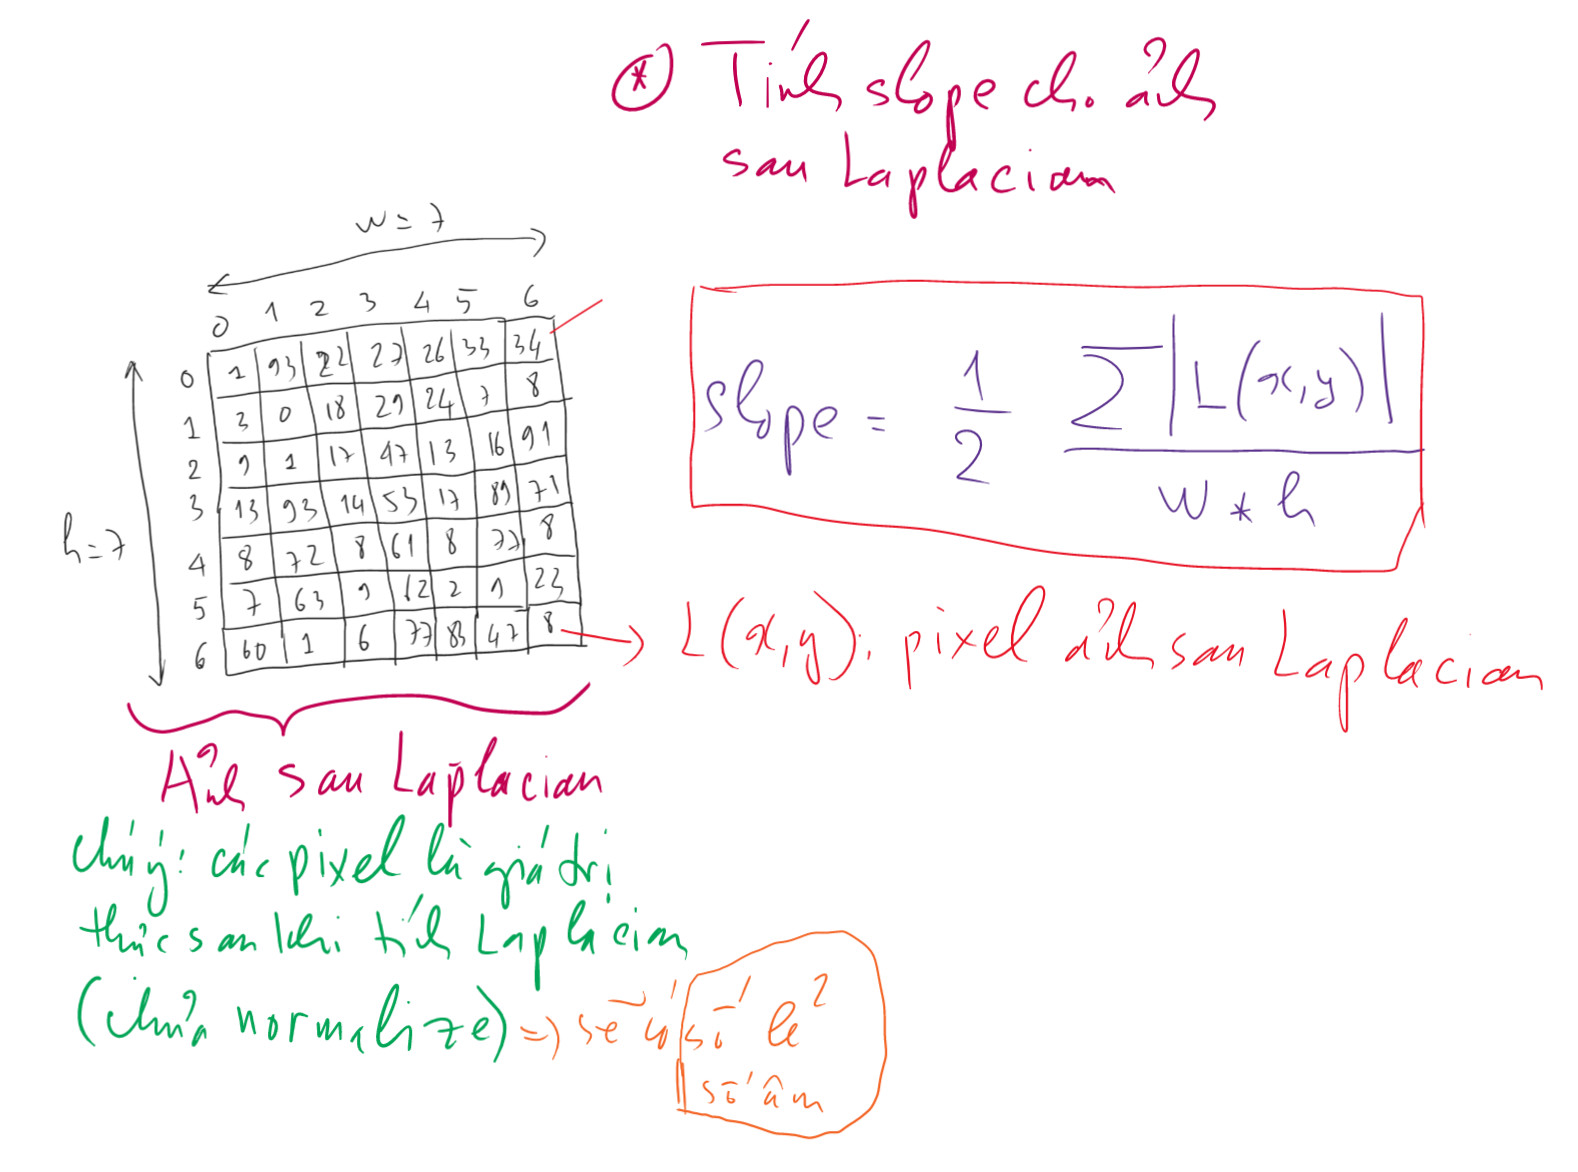 * Tính slope cho ảnh
sau Laplacian
w = 7
0 1 2 3 4 5 6
0 1 93 22 27 26 33 34
1 3 0 18 29 24 7 8
2 9 1 17 47 13 16 91
3 13 93 14 53 17 89 71
4 8 72 8 61 8 77 8
5 7 63 9 62 2 9 23
6 60 1 6 77 83 47 8
h = 7
slope = 1/2 ∑|L(x,y)| / w * h
L(x,y): pixel ảnh sau Laplacian
Ảnh sau Laplacian
chú ý: các pixel là giá trị
thực sau khi tính Laplacian
(chưa normalize) => sẽ có số lẻ
số âm